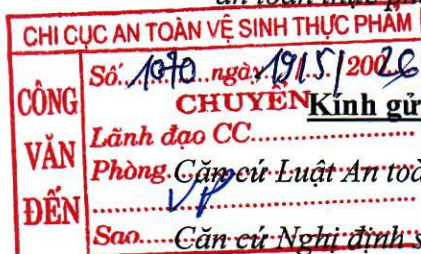 an toàn thực phẩ
CHI CỤC AN TOÀN VỆ SINH THỰC PHẨM
CÔNG VĂN ĐẾN
Số: 1070 ngày 19/5/2026
CHUYỂN Kính gử
Lãnh đạo CC
Phòng. Căn cứ Luật An toà
VP
Sao..... Căn cứ Nghị định s